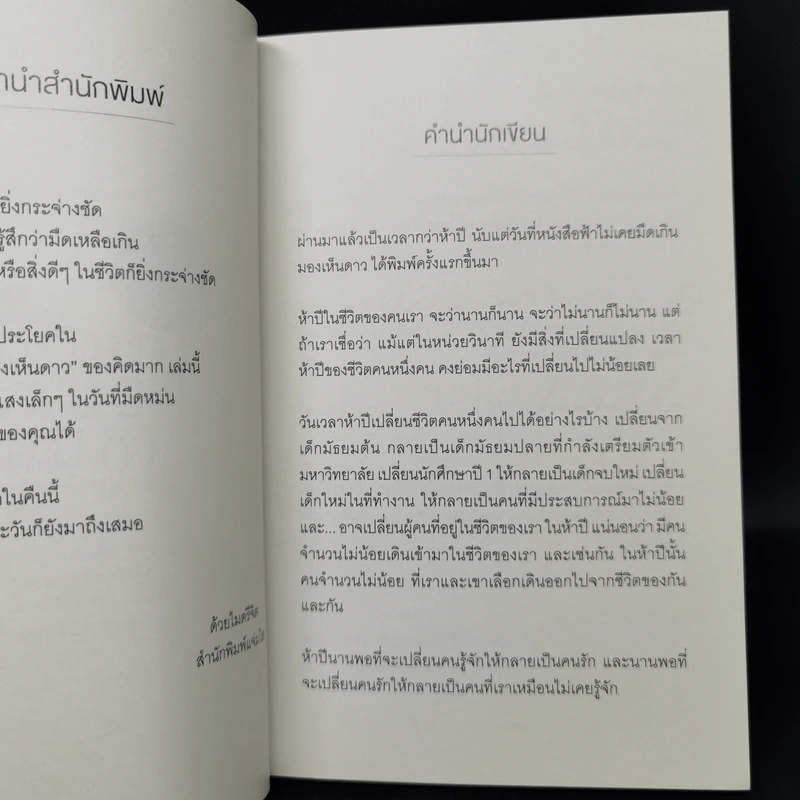 นำสำนักพิมพ์
ยิ่งกระจ่างชัด
รู้สึกว่ามืดเหลือเกิน
หรือสิ่งดีๆ ในชีวิตก็ยิ่งกระจ่างชัด
ประโยคใน
งเห็นดาว" ของคิดมาก เล่มนี้
แสงเล็กๆ ในวันที่มืดหม่น
ของคุณได้
ในคืนนี้
ะวันก็ยังมาถึงเสมอ
ด้วยไมตรีจิต
สำนักพิมพ์แจ่มใส
คำนำนักเขียน
ผ่านมาแล้วเป็นเวลากว่าห้าปี นับแต่วันที่หนังสือฟ้าไม่เคยมืดเกิน
มองเห็นดาว ได้พิมพ์ครั้งแรกขึ้นมา
ห้าปีในชีวิตของคนเรา จะว่านานก็นาน จะว่าไม่นานก็ไม่นาน แต่
ถ้าเราเชื่อว่า แม้แต่ในหน่วยวินาที ยังมีสิ่งที่เปลี่ยนแปลง เวลา
ห้าปีของชีวิตคนหนึ่งคน คงย่อมมีอะไรที่เปลี่ยนไปไม่น้อยเลย
วันเวลาห้าปีเปลี่ยนชีวิตคนหนึ่งคนไปได้อย่างไรบ้าง เปลี่ยนจาก
เด็กมัธยมต้น กลายเป็นเด็กมัธยมปลายที่กำลังเตรียมตัวเข้า
มหาวิทยาลัย เปลี่ยนนักศึกษาปี 1 ให้กลายเป็นเด็กจบใหม่ เปลี่ยน
เด็กใหม่ในที่ทำงาน ให้กลายเป็นคนที่มีประสบการณ์มาไม่น้อย
และ... อาจเปลี่ยนผู้คนที่อยู่ในชีวิตของเรา ในห้าปี แน่นอนว่า มีคน
จำนวนไม่น้อยเดินเข้ามาในชีวิตของเรา และเช่นกัน ในห้าปีนั้น
คนจำนวนไม่น้อย ที่เราและเขาเลือกเดินออกไปจากชีวิตของกัน
และกัน
ห้าปีนานพอที่จะเปลี่ยนคนรู้จักให้กลายเป็นคนรัก และนานพอที่
จะเปลี่ยนคนรักให้กลายเป็นคนที่เราเหมือนไม่เคยรู้จัก